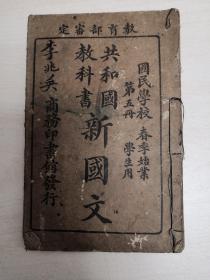 教育部審定
國民學校 春季始業
第五冊 學生用
共和國
教科書
新國文
商務印書館發行
李兆美